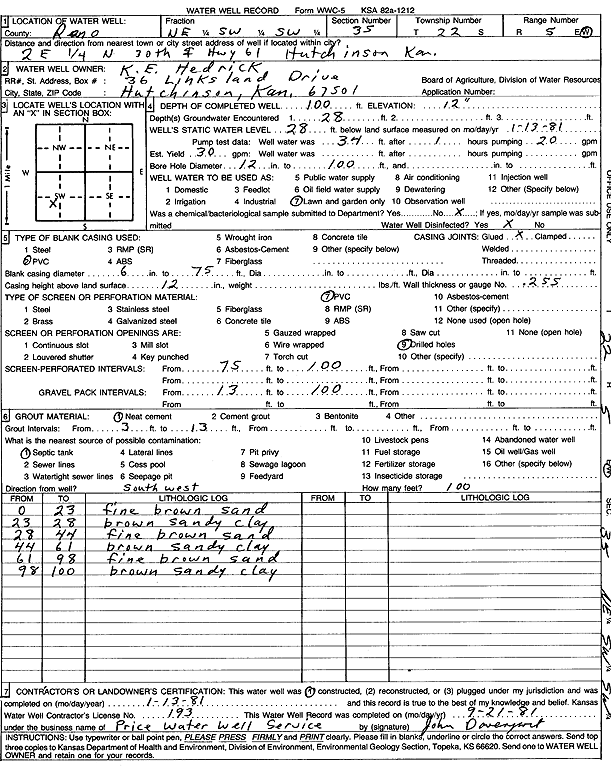 WATER WELL RECORD Form WWC-5 KSA 82a-1212
1 LOCATION OF WATER WELL: Fraction Section Number Township Number Range Number
County: Reno NE ¼ SW ¼ SW ¼ 35 T 22 S R 5 E/W
Distance and direction from nearest town or city street address of well if located within city?
2 E 1/4 N 30th & Hwy 61 Hutchinson Kan.
2 WATER WELL OWNER: K.E. Hedrick
RR#, St. Address, Box # : 36 Linksland Drive Board of Agriculture, Division of Water Resources
City, State, ZIP Code : Hutchinson, Kan. 67501 Application Number:
3 LOCATE WELL'S LOCATION WITH AN "X" IN SECTION BOX:
N
NW NE
W E
SW SE
X
S
1 Mile
4 DEPTH OF COMPLETED WELL 100 ft. ELEVATION: 12"
Depth(s) Groundwater Encountered 1. 28 ft. 2. ft. 3. ft.
WELL'S STATIC WATER LEVEL 28 ft. below land surface measured on mo/day/yr 1-13-81
Pump test data: Well water was 34 ft. after 1 hours pumping 20 gpm
Est. Yield 30 gpm: Well water was ft. after hours pumping gpm
Bore Hole Diameter 12 in. to 100 ft., and in. to ft.
WELL WATER TO BE USED AS: 5 Public water supply 8 Air conditioning 11 Injection well
1 Domestic 3 Feedlot 6 Oil field water supply 9 Dewatering 12 Other (Specify below)
2 Irrigation 4 Industrial 7 Lawn and garden only 10 Observation well
Was a chemical/bacteriological sample submitted to Department? Yes No X ; If yes, mo/day/yr sample was submitted
Water Well Disinfected? Yes X No
5 TYPE OF BLANK CASING USED: 5 Wrought iron 8 Concrete tile CASING JOINTS: Glued X Clamped
1 Steel 3 RMP (SR) 6 Asbestos-Cement 9 Other (specify below) Welded
2 PVC 4 ABS 7 Fiberglass Threaded
Blank casing diameter 6 in. to 75 ft., Dia in. to ft., Dia in. to ft.
Casing height above land surface 12 in., weight lbs./ft. Wall thickness or gauge No. .255
TYPE OF SCREEN OR PERFORATION MATERIAL: 7 PVC 10 Asbestos-cement
1 Steel 3 Stainless steel 5 Fiberglass 8 RMP (SR) 11 Other (specify)
2 Brass 4 Galvanized steel 6 Concrete tile 9 ABS 12 None used (open hole)
SCREEN OR PERFORATION OPENINGS ARE: 5 Gauzed wrapped 8 Saw cut 11 None (open hole)
1 Continuous slot 3 Mill slot 6 Wire wrapped 9 Drilled holes
2 Louvered shutter 4 Key punched 7 Torch cut 10 Other (specify)
SCREEN-PERFORATED INTERVALS: From 75 ft. to 100 ft., From ft. to ft.
From ft. to ft., From ft. to ft.
GRAVEL PACK INTERVALS: From 13 ft. to 100 ft., From ft. to ft.
From ft. to ft., From ft. to ft.
6 GROUT MATERIAL: 1 Neat cement 2 Cement grout 3 Bentonite 4 Other
Grout Intervals: From 3 ft. to 13 ft., From ft. to ft., From ft. to ft.
What is the nearest source of possible contamination: 10 Livestock pens 14 Abandoned water well
1 Septic tank 4 Lateral lines 7 Pit privy 11 Fuel storage 15 Oil well/Gas well
2 Sewer lines 5 Cess pool 8 Sewage lagoon 12 Fertilizer storage 16 Other (specify below)
3 Watertight sewer lines 6 Seepage pit 9 Feedyard 13 Insecticide storage
Direction from well? Southwest How many feet? 100
FROM TO LITHOLOGIC LOG FROM TO LITHOLOGIC LOG
0 23 fine brown sand
23 28 brown sandy clay
28 44 fine brown sand
44 61 brown sandy clay
61 98 fine brown sand
98 100 brown sandy clay
7 CONTRACTOR'S OR LANDOWNER'S CERTIFICATION: This water well was (1) constructed, (2) reconstructed, or (3) plugged under my jurisdiction and was
completed on (mo/day/year) 1-13-81 and this record is true to the best of my knowledge and belief. Kansas
Water Well Contractor's License No. 193 This Water Well Record was completed on (mo/day/yr) 9-21-81
under the business name of Price Water Well Service by (signature) John Davenport
INSTRUCTIONS: Use typewriter or ball point pen, PLEASE PRESS FIRMLY and PRINT clearly. Please fill in blanks, underline or circle the correct answers. Send top
three copies to Kansas Department of Health and Environment, Division of Environment, Environmental Geology Section, Topeka, KS 66620. Send one to WATER WELL
OWNER and retain one for your records.
OFFICE USE ONLY
T 22 R 5 E/W SEC 35 NE ¼ SW ¼ SW ¼